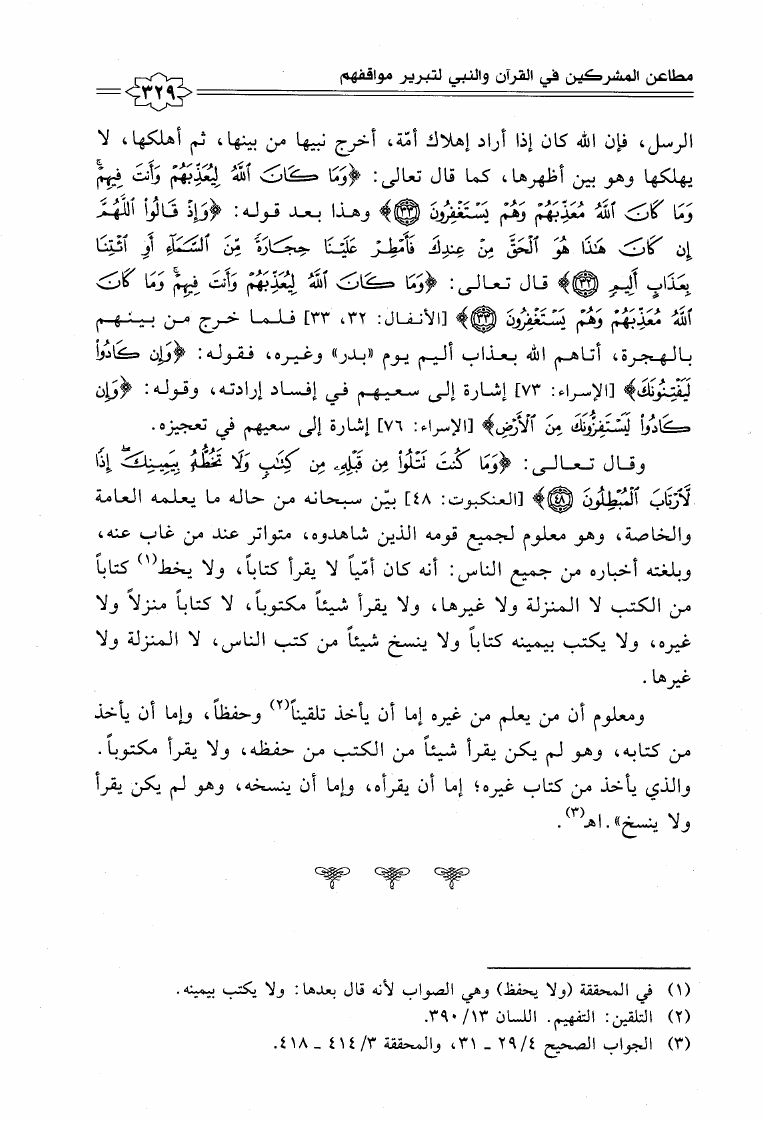 مطاعن المشركين في القرآن والنبي لتبرير مواقفهم
٣٢٩
الرسل، فإن الله كان إذا أراد إهلاك أمّة، أخرج نبيها من بينها، ثم أهلكها، لا
يهلكها وهو بين أظهرها، كما قال تعالى: ﴿وَمَا كَانَ ٱللَّهُ لِيُعَذِّبَهُمْ وَأَنتَ فِيهِمْۚ
وَمَا كَانَ ٱللَّهُ مُعَذِّبَهُمْ وَهُمْ يَسْتَغْفِرُونَ ٣٣﴾ وهذا بعد قوله: ﴿وَإِذْ قَالُوا۟ ٱللَّهُمَّ
إِن كَانَ هَـٰذَا هُوَ ٱلْحَقَّ مِنْ عِندِكَ فَأَمْطِرْ عَلَيْنَا حِجَارَةً مِّنَ ٱلسَّمَآءِ أَوِ ٱئْتِنَا
بِعَذَابٍ أَلِيمٍ ٣٢﴾ قال تعالى: ﴿وَمَا كَانَ ٱللَّهُ لِيُعَذِّبَهُمْ وَأَنتَ فِيهِمْۚ وَمَا كَانَ
ٱللَّهُ مُعَذِّبَهُمْ وَهُمْ يَسْتَغْفِرُونَ ٣٣﴾ [الأنفال: ٣٢، ٣٣] فلما خرج من بينهم
بالهجرة، أتاهم الله بعذاب أليم يوم «بدر» وغيره، فقوله: ﴿وَإِن كَادُوا۟
لَيَفْتِنُونَكَ﴾ [الإسراء: ٧٣] إشارة إلى سعيهم في إفساد إرادته، وقوله: ﴿وَإِن
كَادُوا۟ لَيَسْتَفِزُّونَكَ مِنَ ٱلْأَرْضِ﴾ [الإسراء: ٧٦] إشارة إلى سعيهم في تعجيزه.
وقال تعالى: ﴿وَمَا كُنتَ تَتْلُوا۟ مِن قَبْلِهِۦ مِن كِتَـٰبٍ وَلَا تَخُطُّهُۥ بِيَمِينِكَۖ إِذًا
لَّٱرْتَابَ ٱلْمُبْطِلُونَ ٤٨﴾ [العنكبوت: ٤٨] بيّن سبحانه من حاله ما يعلمه العامة
والخاصة، وهو معلوم لجميع قومه الذين شاهدوه، متواتر عند من غاب عنه،
وبلغته أخباره من جميع الناس: أنه كان أمّياً لا يقرأ كتاباً، ولا يخط(١) كتاباً
من الكتب لا المنزلة ولا غيرها، ولا يقرأ شيئاً مكتوباً، لا كتاباً منزلاً ولا
غيره، ولا يكتب بيمينه كتاباً ولا ينسخ شيئاً من كتب الناس، لا المنزلة ولا
غيرها.
ومعلوم أن من يعلم من غيره إما أن يأخذ تلقيناً(٢) وحفظاً، وإما أن يأخذ
من كتابه، وهو لم يكن يقرأ شيئاً من الكتب من حفظه، ولا يقرأ مكتوباً.
والذي يأخذ من كتاب غيره؛ إما أن يقرأه، وإما أن ينسخه، وهو لم يكن يقرأ
ولا ينسخ». اهـ(٣).
(١) في المحققة (ولا يحفظ) وهي الصواب لأنه قال بعدها: ولا يكتب بيمينه.
(٢) التلقين: التفهيم. اللسان ٣٩٠/١٣.
(٣) الجواب الصحيح ٢٩/٤ ـ ٣١، والمحققة ٤١٤/٣ ـ ٤١٨.